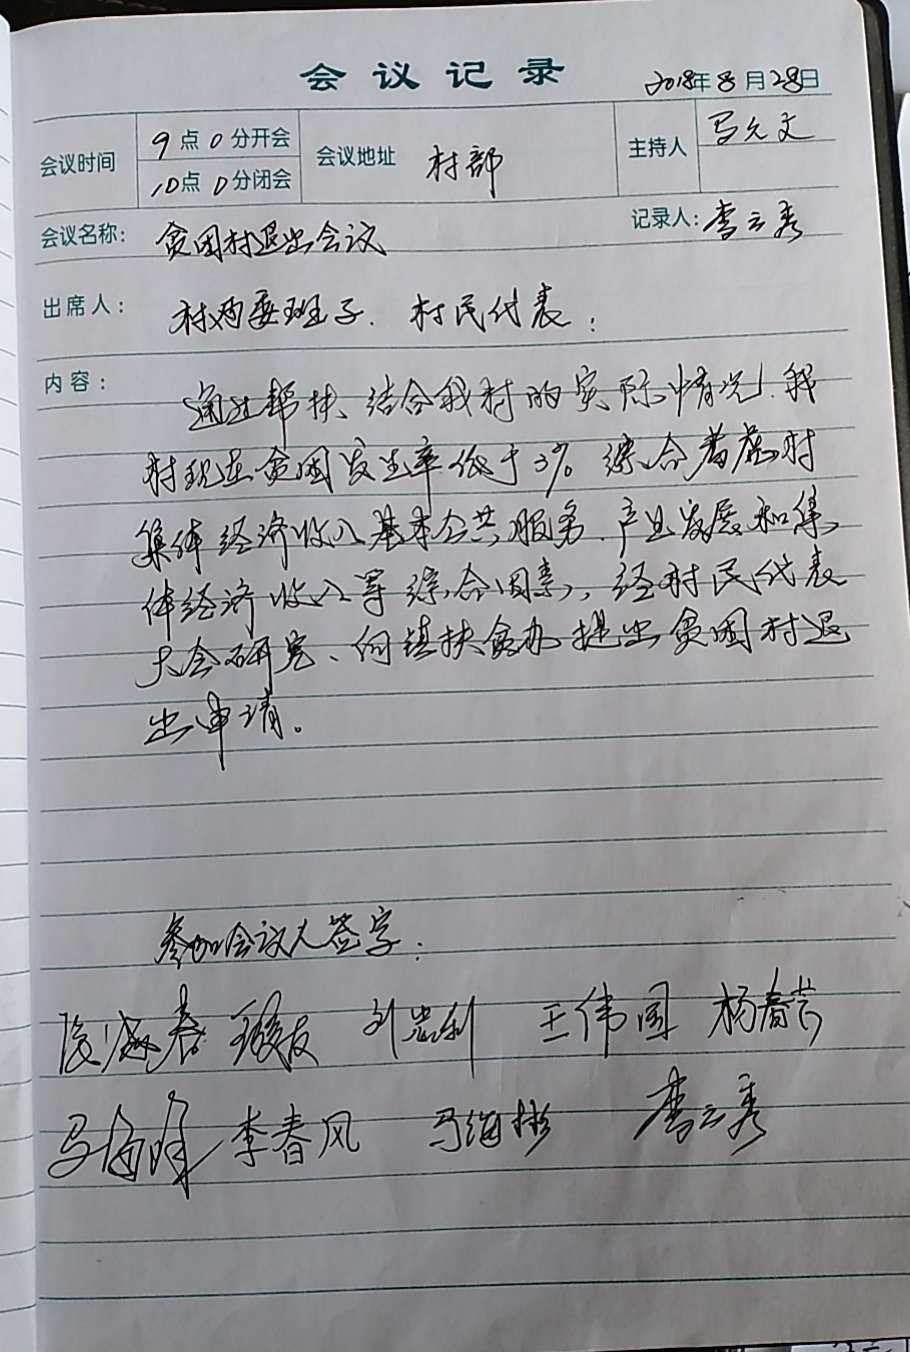 会议记录
2018年8月28日
会议时间 9点0分开会 会议地址 村部 主持人 马久文
10点0分闭会
会议名称: 贫困村退出会议 记录人: 李云秀
出席人: 村两委班子、村民代表:
内容: 通过帮扶、结合我村的实际情况!我
村现在贫困发生率低于3%。综合考虑村
集体经济收入基本公共服务、产业发展和集
体经济收入等综合因素,经村民代表
大会研究、向镇扶贫办提出贫困村退
出申请。
参加会议人签字:
春 刘忠利 王伟国 杨春芳
马海峰 李春风 马海彬 李云秀